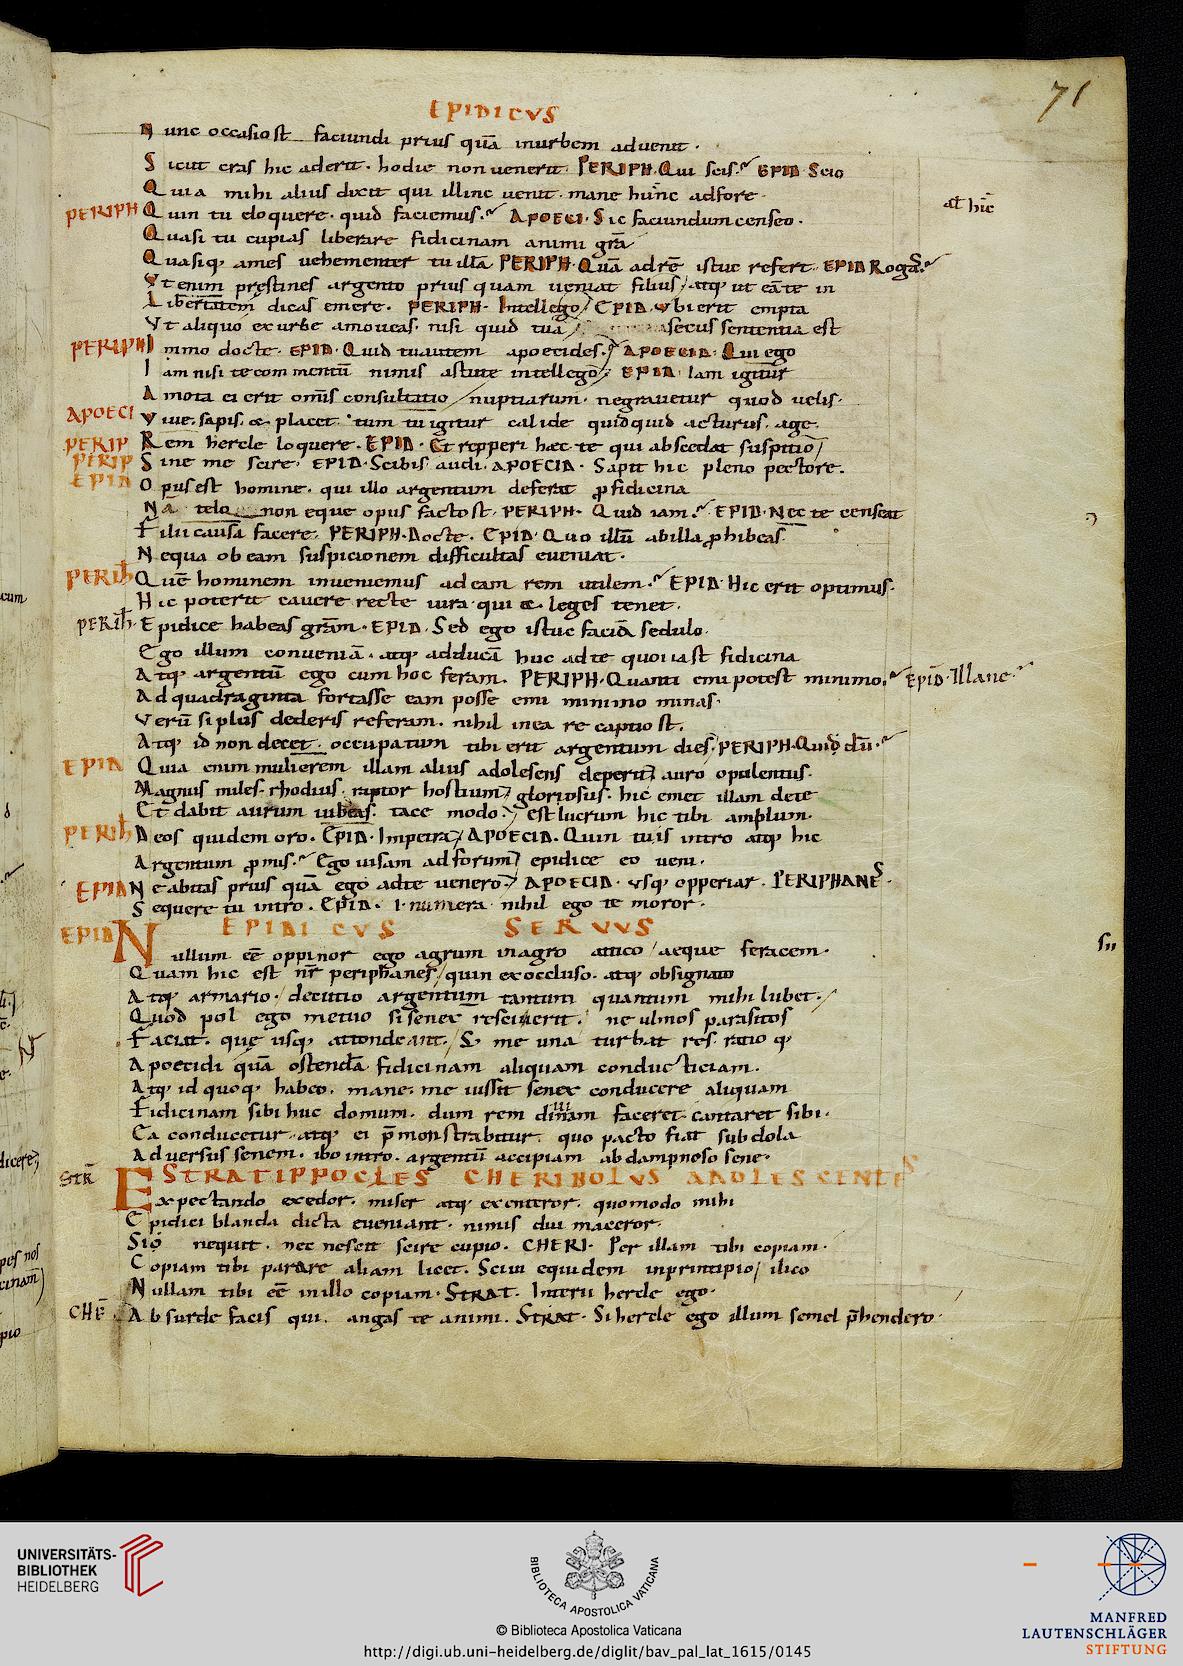 71
EPIDICVS
Nunc occasiost faciundi prius quā inurbem aduenit.
Sicut cras hic aderit. hodie non uenerit. PERIPH. Qui scis. EPID. Scio
Quia mihi alius dixit qui illinc uenit. mane hunc adfore. at hic̄
PERIPH Quin tu eloquere. quid faciemus. APOECI. Sic faciundum censeo.
Quasi tu cupias liberare fidicinam animi grā
Quasiq; ames uehementer tu illā PERIPH. Quā adrē istuc refert. EPID Rogas.
Vt enim prestines argento prius quam ueniat filius/ atq; ut eāte in
Libertatem dicas emere. PERIPH. Intellego/ EPID. vbi erit empta
Vt aliquo exurbe amoueas. nisi quid tua secus sententia est
PERIPH Immo docte. EPID. Quid tu autem apoecides. APOECID. Qui ego
Iam nisi te commentū nimis astute intellego/ EPID. Iam igitur
Amota ei erit omīs consultatio/ nuptiarum. ne grauetur quod uelis.
APOECI Viue. sapis. & placet. tum tu igitur calide quidquid acturus. age.
PERIP Rem hercle loquere. EPID. Et repperi haec te qui abscedat suspitio/
PERIP Sine me scire. EPID. Scibis. audi. APOECID. Sapit hic pleno pectore.
EPID Opus est homine. qui illo argentum deferat p fidicina
Nā te lo non eque opus factost. PERIPH. Quid iam. EPID. Nec te censeat
Filii causā facere. PERIPH. Docte. EPID. Quo illū abilla phibeas.
Nequa ob eam suspicionem difficultas eueniat.
PERIH Quē hominem inueniemus ad eam rem utilem. EPID. Hic erit optimus.
Hic poterit cauere recte iura qui & leges tenet.
PERIH. Epidice habeas grām. EPID. Sed ego istuc faciā sedulo.
Ego illum conueniā. atq; adducā huc adte quoiiast fidicina
Atq; argentū ego cum hoc feram. PERIPH. Quanti emi potest minimo. EPID. Illane.
Ad quadraginta fortasse eam posse emi minimo minas.
Verū si plus dederis referam. nihil inea re captiost.
Atq; id non decet. occupatum tibi erit argentum dies/ PERIPH. Quid dū.
EPID Quia enim mulierem illam alius adolesens deperit/ auro opulentus.
Magnus miles. rhodius. raptor hostium/ gloriosus. hic emet illam dete
Et dabit aurum iubeas. tace modo. est lucrum hic tibi amplum.
PERIH Deos quidem oro. EPID. Impetra/ APOECID. Quin tu is intro atq; hic
Argentum pmis. Ego uisam ad forum/ epidice eo ueni.
EPID Ne abitas prius quā ego adte uenero/ APOECID. vsq; opperiar. PERIPHANES.
Sequere tu intro. EPID. I numera nihil ego te moror.
EPIDICVS SERVVS
EPID Nullum eē oppinor ego agrum inagro attico/ aeque feracem.
Quam hic est nr̄ periphanes/ quin exoccluso. atq; obsignato
Atq; armario./ decutio argentum tantum quantum mihi lubet./
Quod pol ego metuo si senex resciuerit. ne ulmos parasitos
Faciat. quę usq; attondeant./ S& me una turbat res. ratio q;
Apoecidi quā ostendā fidicinam aliquam conducticiam.
Atq; id quoq; habeo. mane. me iussit senex conducere aliquam
Fidicinam sibi huc domum. dum rem diuinam faceret. cantaret sibi.
Ea conducetur. atq; ei p̄monstrabitur. quo pacto fiat subdola
Aduersus senem. ibo intro. argentū accipiam ab dampnoso sene.
STRATIPPOCLES CHERIBOLVS ADOLESCENTES
STR̄ Expectando exedor. miser atq; exenteror. quomodo mihi
Epidici blanda dicta eueniant. nimis diu maceror.
Siq nequit. nec nesett scire cupio. CHERI. Per illam tibi copiam.
Copiam tibi parare aliam licet. Sciui equidem inprintipio/ ilico
Nullam tibi eē inillo copiam. STRAT. Interii hercle ego.
CHĒ Absurde facis qui. angas te animi. STRAT. Si hercle ego illum semel p̄hendero.
UNIVERSITÄTS-
BIBLIOTHEK
HEIDELBERG
BIBLIOTECA APOSTOLICA VATICANA
© Biblioteca Apostolica Vaticana
http://digi.ub.uni-heidelberg.de/diglit/bav_pal_lat_1615/0145
MANFRED
LAUTENSCHLÄGER
STIFTUNG